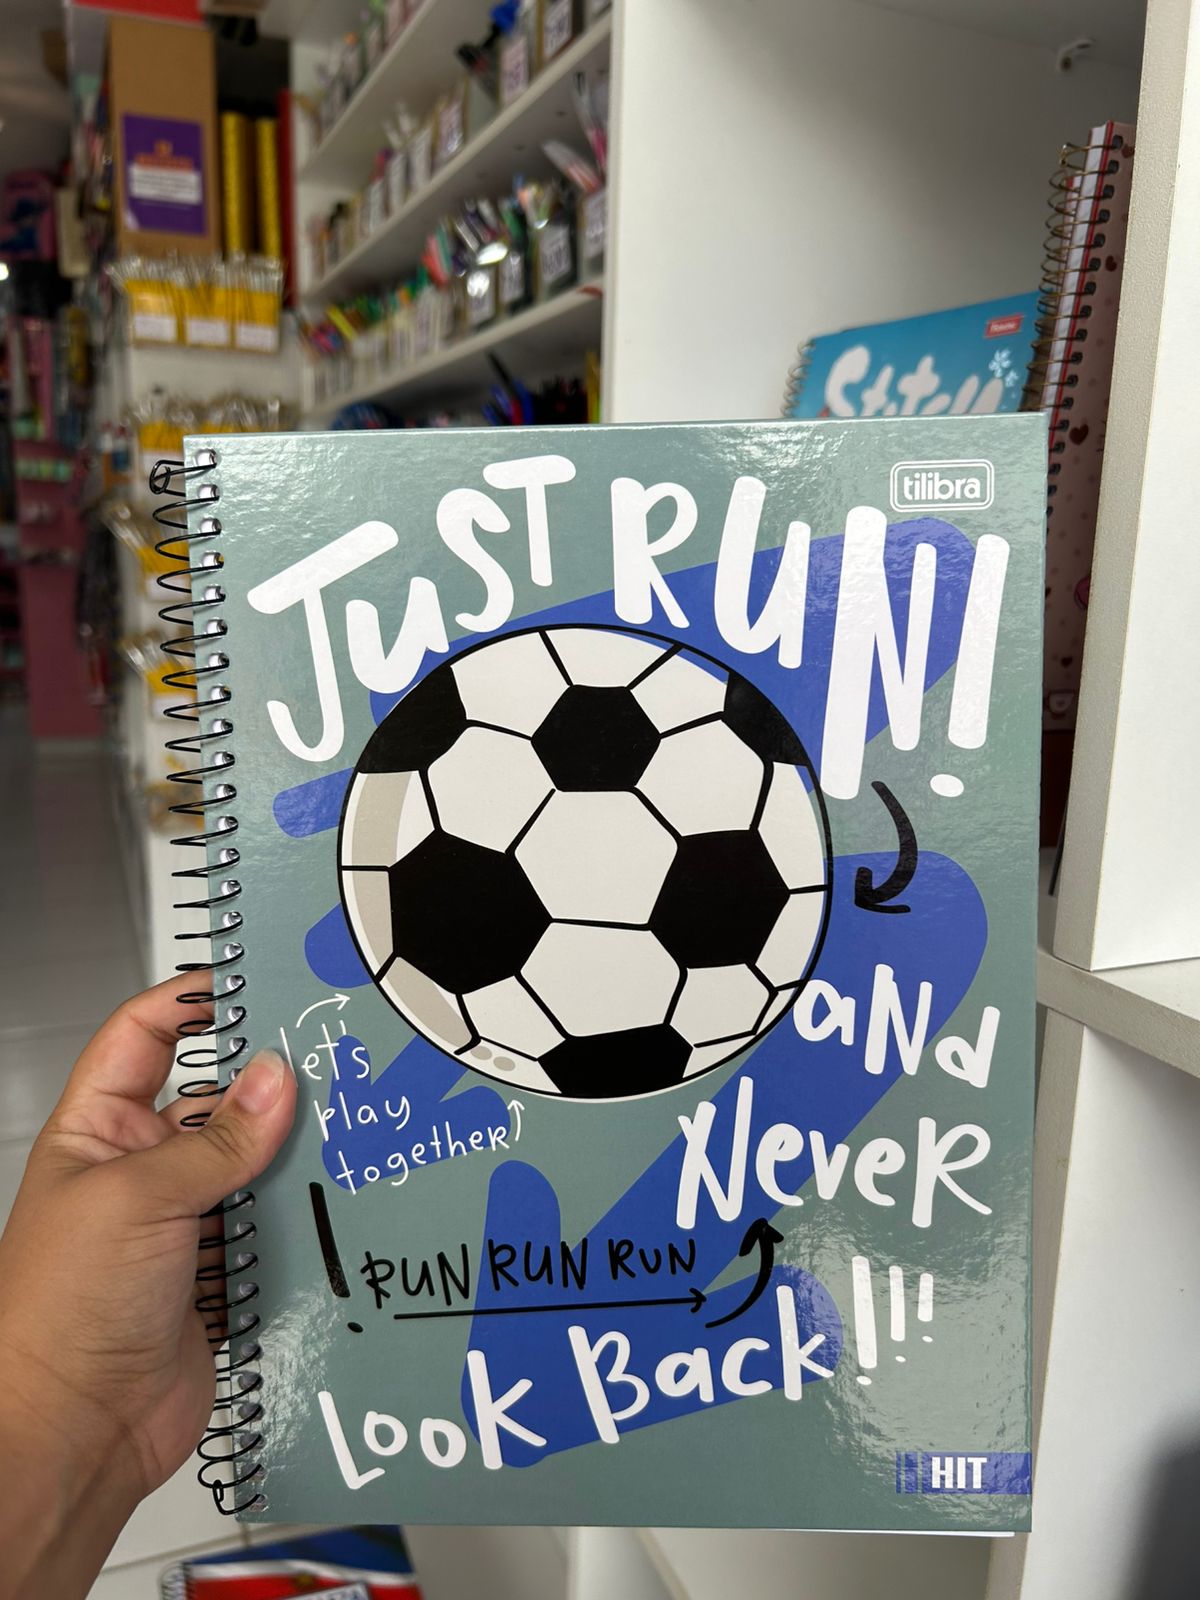 Stitch
tilibra
JUST RUN!
let's
play
together
aNd
NeveR
! RUN RUN RUN
Look Back!!!
HIT